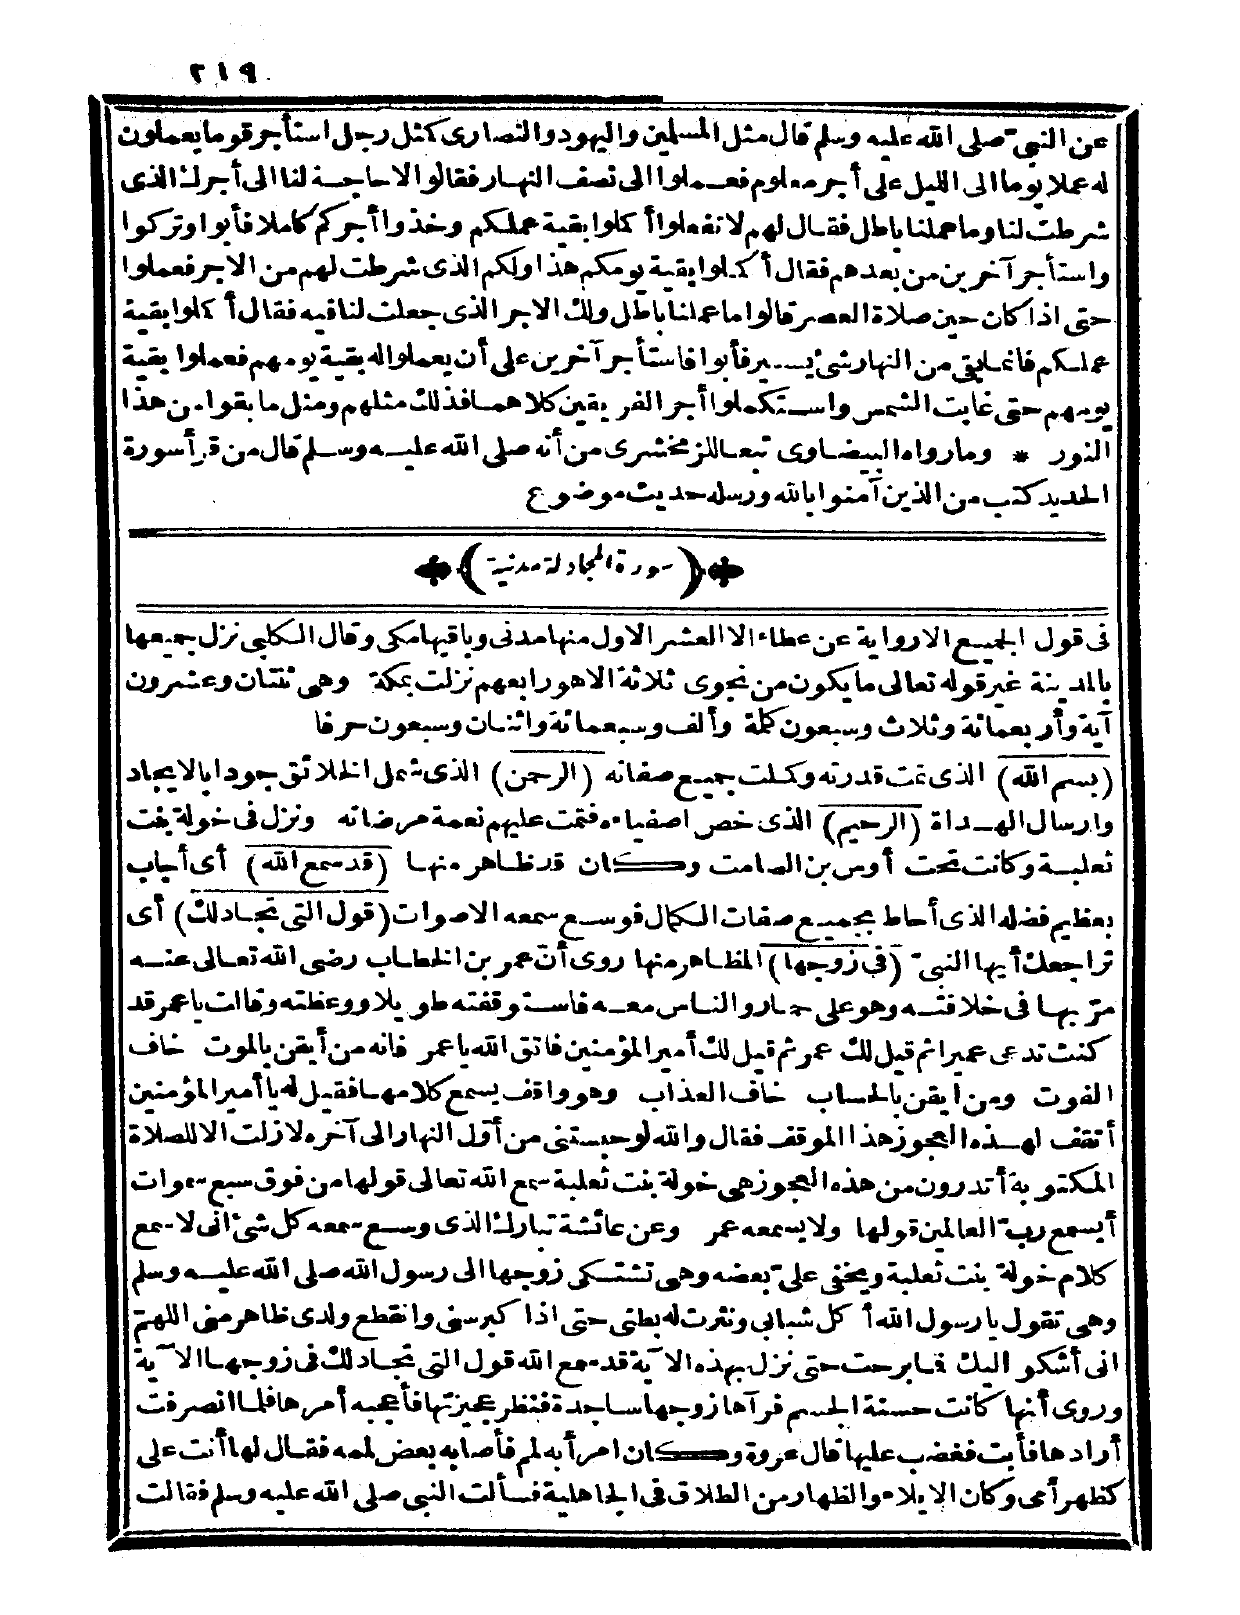 ٢١٩
عن النبيّ صلى الله عليه وسلم قال مثل المسلمين واليهود والنصارى كمثل رجل استأجر قوما يعملون
له عملا يوما الى الليل على أجر معلوم فعملوا الى نصف النهار فقالوا لا حاجة لنا الى أجرك الذى
شرطت لنا وما عملنا باطل فقال لهم لا تفعلوا أكملوا بقية عملكم وخذوا أجركم كاملا فأبوا وتركوا
واستأجر آخرين من بعدهم فقال أكملوا بقية يومكم هذا ولكم الذى شرطت لهم من الاجر فعملوا
حتى اذا كان حين صلاة العصر قالوا ما عملنا باطل ولك الاجر الذى جعلت لنا فيه فقال أكملوا بقية
عملكم فانما بقى من النهار شئ يسير فأبوا فاستأجر آخرين على أن يعملوا له بقية يومهم فعملوا بقية
يومهم حتى غابت الشمس واستكملوا أجر الفريقين كلاهما فذلك مثلهم ومثل ما بقوا من هذا
النور * وما رواه البيضاوى تبعا للزمخشرى من أنه صلى الله عليه وسلم قال من قرأ سورة
الحديد كتب من الذين آمنوا بالله ورسله حديث موضوع
(سورة المجادلة مدنية)
فى قول الجميع الا رواية عن عطاء الا العشر الاول منها مدنى وباقيها مكى وقال الكلبى نزل جميعها
بالمدينة غير قوله تعالى ما يكون من نجوى ثلاثة الا هو رابعهم نزلت بمكة وهى ثنتان وعشرون
آية وأربعمائة وثلاث وسبعون كلمة وألف وسبعمائة واثنان وسبعون حرفا
(بسم الله) الذى تمت قدرته وكملت جميع صفاته (الرحمن) الذى شمل الخلائق جودا بالايجاد
وارسال الهداة (الرحيم) الذى خص اصفياءه فتمت عليهم نعمة مرضاته ونزل فى خولة بنت
ثعلبة وكانت تحت أوس بن الصامت وكان قد ظاهر منها (قد سمع الله) أى أجاب
بعظيم فضله الذى أحاط بجميع صفات الكمال فوسع سمعه الاصوات (قول التى تجادلك) أى
تراجعك أيها النبىّ (فى زوجها) المظاهر منها روى أنّ عمر بن الخطاب رضى الله تعالى عنه
مرّ بها فى خلافته وهو على حمار والناس معه فاستوقفته طويلا ووعظته وقالت يا عمر قد
كنت تدعى عميرا ثم قيل لك عمر ثم قيل لك أمير المؤمنين فاتق الله يا عمر فانه من أيقن بالموت خاف
الفوت ومن ايقن بالحساب خاف العذاب وهو واقف يسمع كلامها فقيل له يا أمير المؤمنين
أتقف لهذه العجوز هذا الموقف فقال والله لو حبستنى من أوّل النهار الى آخره لا زلت الا للصلاة
المكتوبة أتدرون من هذه العجوز هى خولة بنت ثعلبة سمع الله تعالى قولها من فوق سبع سموات
أيسمع ربّ العالمين قولها ولا يسمعه عمر وعن عائشة تبارك الذى وسع سمعه كل شئ انى لا سمع
كلام خولة بنت ثعلبة ويخفى علىّ بعضه وهى تشتكى زوجها الى رسول الله صلى الله عليه وسلم
وهى تقول يا رسول الله أكل شبابى ونثرت له بطنى حتى اذا كبر سنى وانقطع ولدى ظاهر منى اللهمّ
انى أشكو اليك فما برحت حتى نزل بهذه الآية قد سمع الله قول التى تجادلك فى زوجها الآية
وروى أنها كانت حسنة الجسم فرآها زوجها ساجدة فنظر عجيزتها فأعجبه أمرها فلما انصرفت
أرادها فأبت فغضب عليها قال عروة وكان امرأ به لمم فأصابه بعض لممه فقال لها أنت علىّ
كظهر أمى وكان الايلاء والظهار من الطلاق فى الجاهلية فسألت النبى صلى الله عليه وسلم فقالت